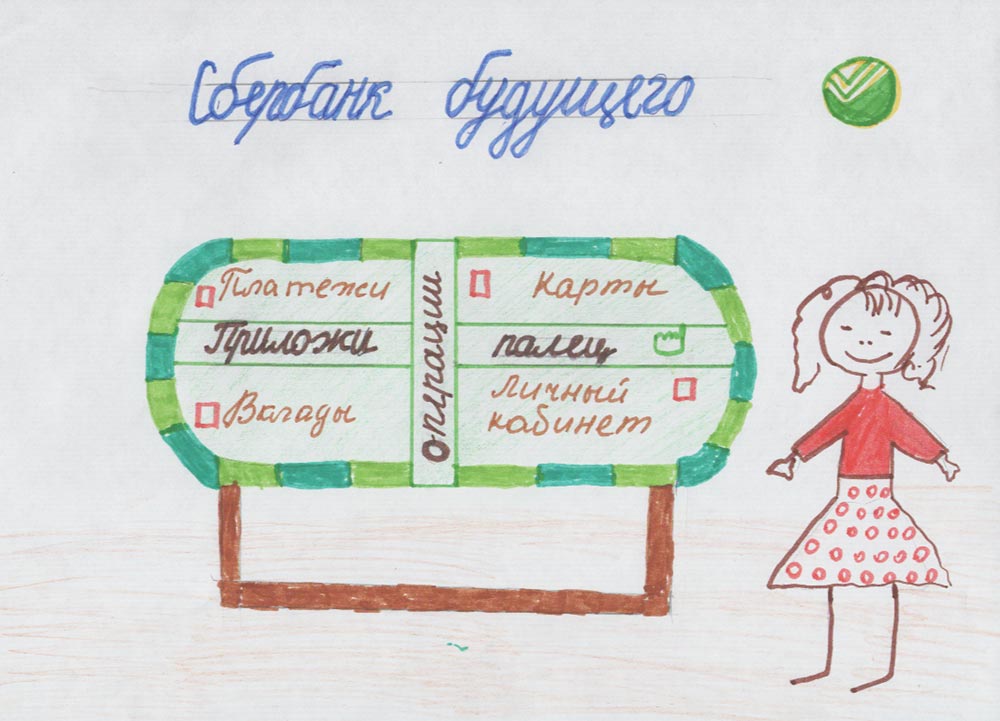 Сбербанк будущего
Платежи
Карты
операции
Приложи палец
Вклады
Личный
кабинет